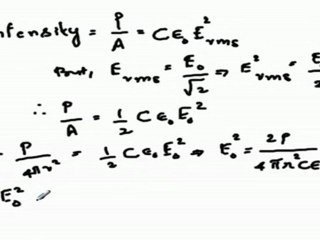 nfensity = P/A = Cϵ₀E²rms
But, Erms = E₀/√2 ⇒ E²rms = E
∴ P/A = 1/2 Cϵ₀E₀²
P/4πr² = 1/2 Cϵ₀E₀² ⇒ E₀² = 2P/4πr²Cϵ
E₀²